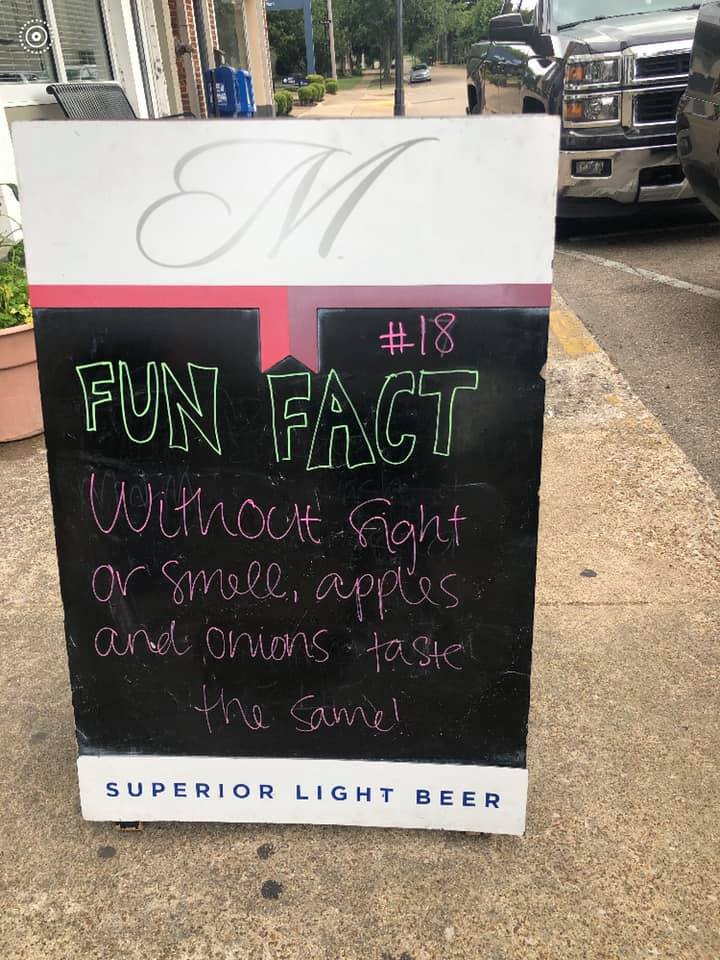 M
#18
FUN FACT
Without sight
or smell, apples
and onions taste
the same!
SUPERIOR LIGHT BEER